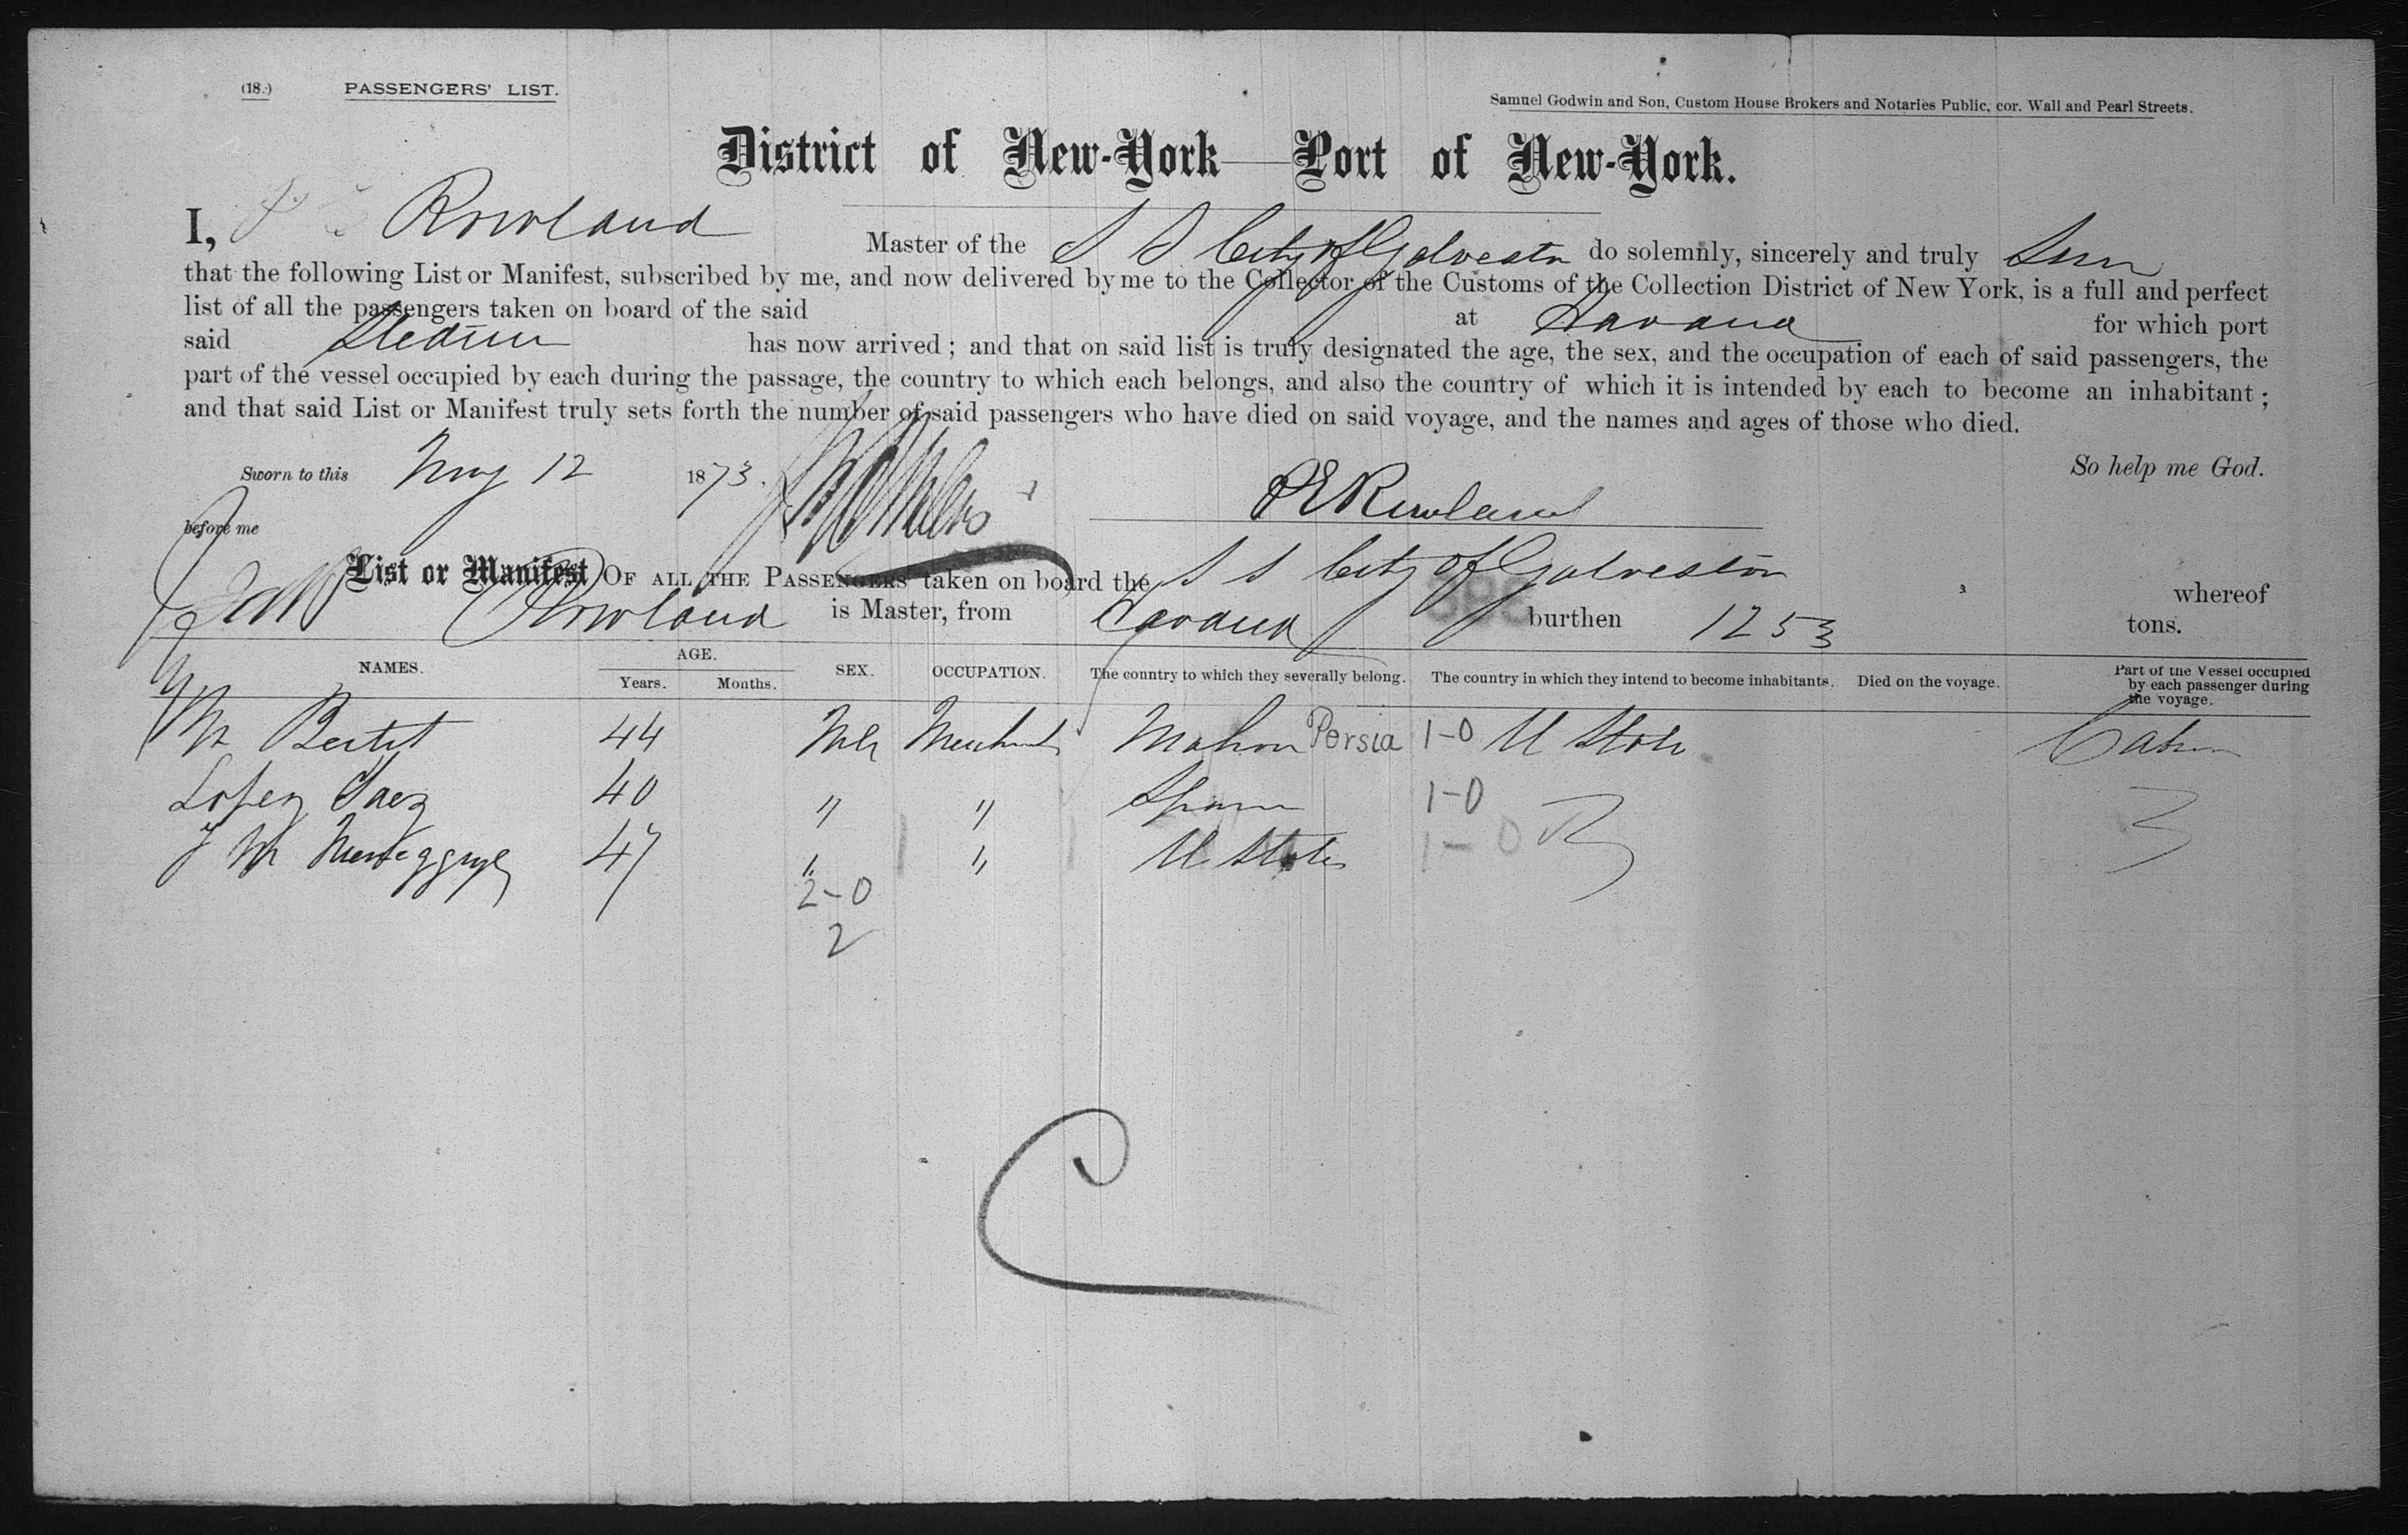 (18.) PASSENGERS' LIST.
Samuel Godwin and Son, Custom House Brokers and Notaries Public, cor. Wall and Pearl Streets.
District of New-York—Port of New-York.
I, Rowland Master of the S S City of Galveston do solemnly, sincerely and truly
that the following List or Manifest, subscribed by me, and now delivered by me to the Collector of the Customs of the Collection District of New York, is a full and perfect
list of all the passengers taken on board of the said at Havana for which port
said has now arrived; and that on said list is truly designated the age, the sex, and the occupation of each of said passengers, the
part of the vessel occupied by each during the passage, the country to which each belongs, and also the country of which it is intended by each to become an inhabitant;
and that said List or Manifest truly sets forth the number of said passengers who have died on said voyage, and the names and ages of those who died.
So help me God.
Sworn to this May 12 1873.
before me P E Rowland
List or Manifest OF ALL THE PASSENGERS taken on board the S S City of Galveston whereof
Rowland is Master, from Havana burthen 1253 tons.
NAMES. AGE. Years. Months. SEX. OCCUPATION. The country to which they severally belong. The country in which they intend to become inhabitants. Died on the voyage. Part of the Vessel occupied by each passenger during the voyage.
44 Persia 1-0 U States Cabin
Lopez Saez 40 " " Spain 1-0
J M 47 " " U States 1-0
2-0
2
C